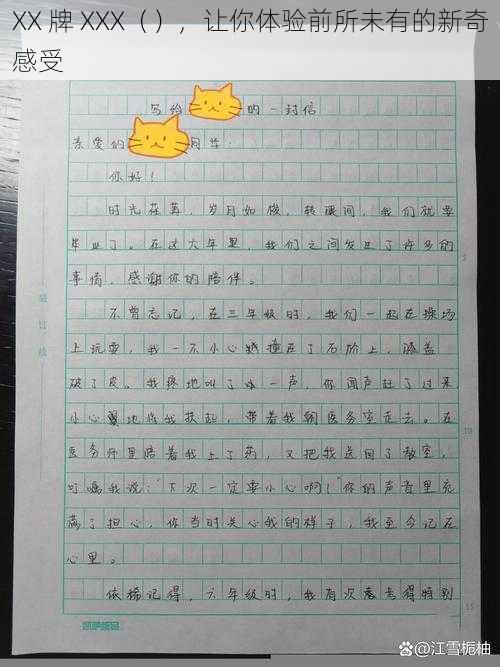 XX 牌 XXX（），让你体验前所未有的新奇
感受
写给 的一封信
亲爱的 同学：
你好！
时光荏苒，岁月如梭，转眼间，我们就要
毕业了。在这六年里，我们之间发生了许多的
事情，感谢你的陪伴。
不曾忘记，在三年级时，我们一起在操场
上玩耍，我一不小心 撞在了石阶上，膝盖
破了皮。我疼地叫了 一声，你闻声赶了过来
小心翼地将我扶起，带着我朝医务室走去。在
医务师里陪着我上了药，又把我送回了教室，
叮嘱我说：“下次一定要小心啊！”你的声音里充
满了担心，你当时关心我的样子，我至今记在
心里。
依稀记得，六年级时，我有次 考得特别
5
10
15
装订线
百家号/江雪栀柚